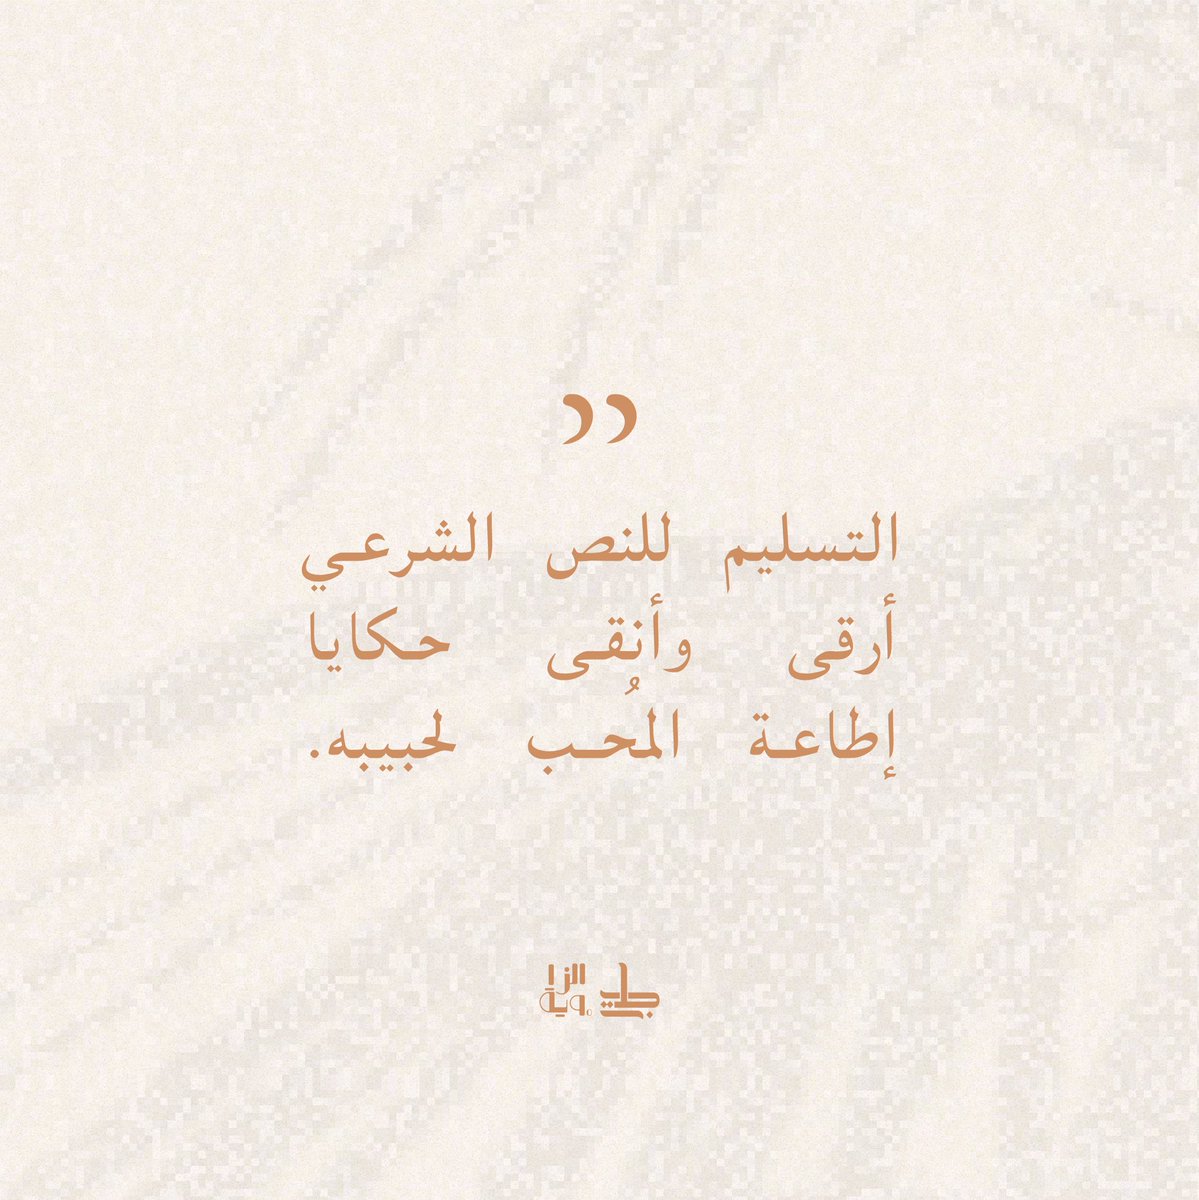 التسليم للنص الشرعي
أرقى وأنقى حكايا
إطاعة المُحب لحبيبه.
الزاوية